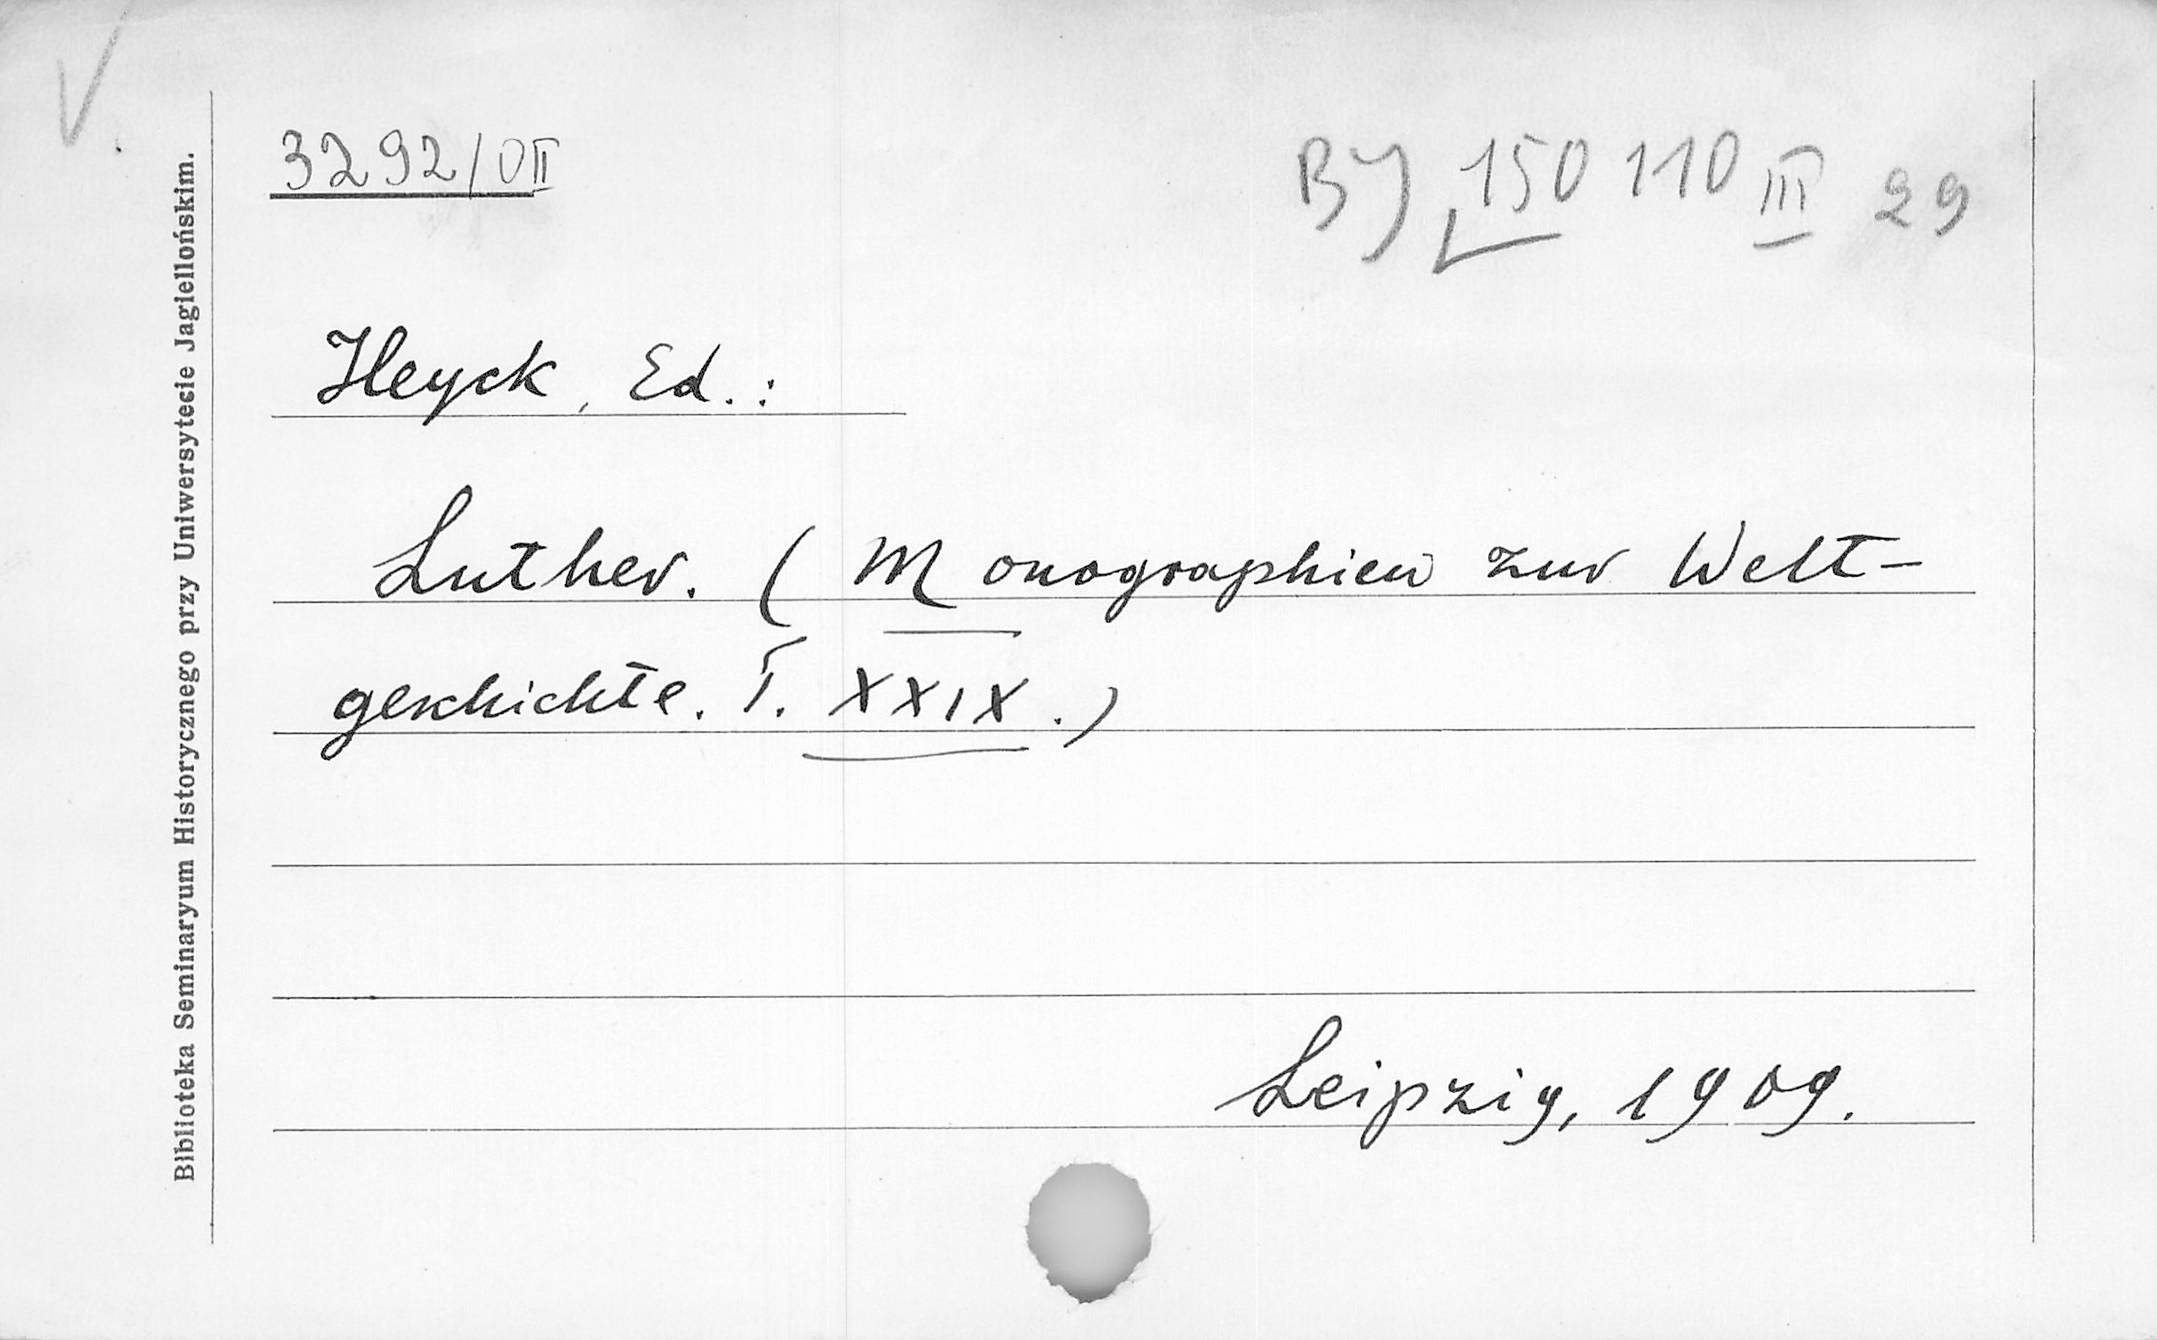 V
3292/OII
BJ 150 110 III 29
Heyck, Ed.:
Luther. (Monographien zur Welt-
geschichte. T. XXIX.)
Leipzig, 1909.
Biblioteka Seminaryum Historycznego przy Uniwersytecie Jagiellońskim.